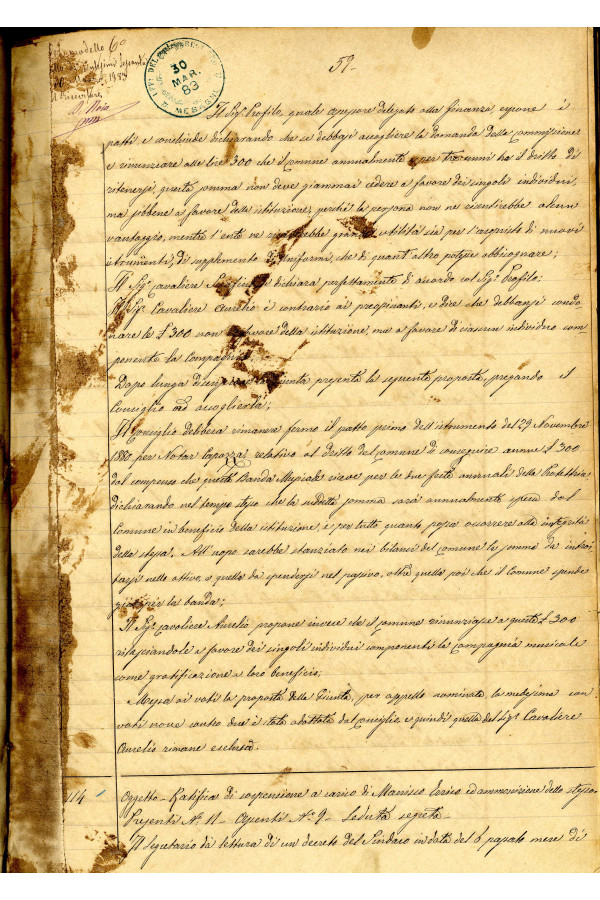 59-
30
MAR.
83
Il Sig. Profilo, quale assessore delegato alla finanza espone i
patti, e conchiude dichiarando che si debba accogliere la domanda della commissione
e rinunziare alle lire 300 che il comune annualmente e per tre anni ha il dritto di
ritenersi, questa somma non deve giammai cedere a favore dei singoli individui,
ma sibbene a favore della istituzione, perchè la persona non ne risentirebbe alcun
vantaggio, mentre l'ente ne grande utilità sia per l'acquisto di nuovi
istrumenti, di supplemento di uniformi, che di quant'altro potesse abbisognare;
Il Sig. cavaliere dichiara perfettamente di accordo col Sig. Profilo;
Il Sig. Cavaliere Aurelio è contrario ai preopinanti, e dice che debbansi condo
nare le £ 300 non a favore della istituzione, ma a favore di ciascun individuo com-
ponente la Compagnia.
Dopo lunga la Giunta presenta la seguente proposta, pregando il
Consiglio ad accoglierla;
Il Consiglio debbesi rimanere fermo il patto primo dell'istrumento del 29 Novembre
1880 per Notar relativo al dritto del comune di conseguire annue £ 300
dal compenso che questa Banda Musicale riceve per le due feste annuali della Protettrice
dichiarando nel tempo stesso che la suddetta somma sarà annualmente spesa dal
Comune in beneficio della istituzione, e per tutto quanto possa occorrere alla integrità
della stessa. All'uopo sarebbe stanziato nei bilanci del comune la somma da introi
tarsi nello attivo, e quella da spendersi nel passivo, oltre quella poi che il Comune spende
la banda;
Il Sig. Cavaliere Aurelio propone invece che il comune rinunziasse a queste £ 300
rilasciandole a favore dei singoli individui componenti la compagnia musicale
come gratificazione a loro beneficio;
Messa ai voti la proposta della Giunta, per appello nominale, la medesima con
voti nove contro due è stata adottata dal Consiglio, e quindi quella del Sig. Cavaliere
Aurelio rimane esclusa.
114 Oggetto - Ratifica di sospensione a carico di Errico ed ammonizione dello stesso
Presenti N. 11 - Assenti N. 9 - Seduta segreta -
Il Segretario dà lettura di un decreto del Sindaco in data del 6 passato mese di